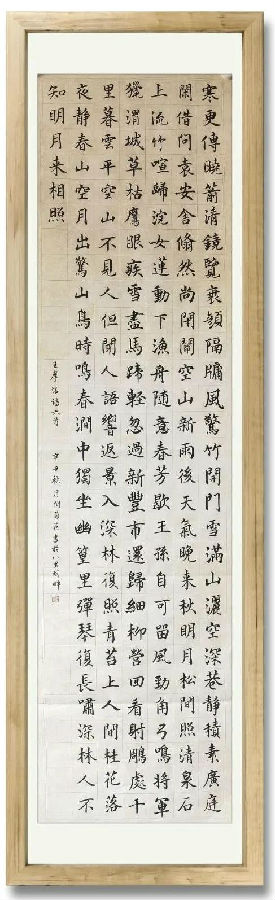 寒更傳曉箭清鏡覽衰顏隔牖風驚竹開門雪滿山灑空深巷靜積素廣庭
閑借問袁安舍翛然尚閉關空山新雨後天氣晚来秋明月松間照清泉石
上流竹喧歸浣女蓮動下漁舟隨意春芳歇王孫自可留風勁角弓鳴將軍
獵渭城草枯鷹眼疾雪盡馬蹄輕忽過新豐市還歸細柳營回看射鵰處千
里暮雲平空山不見人但聞人語響返景入深林復照青苔上人閒桂花落
夜靜春山空月出驚山鳥時鳴春澗中獨坐幽篁里彈琴復長嘯深林人不
知明月来相照
王摩詰詩六首